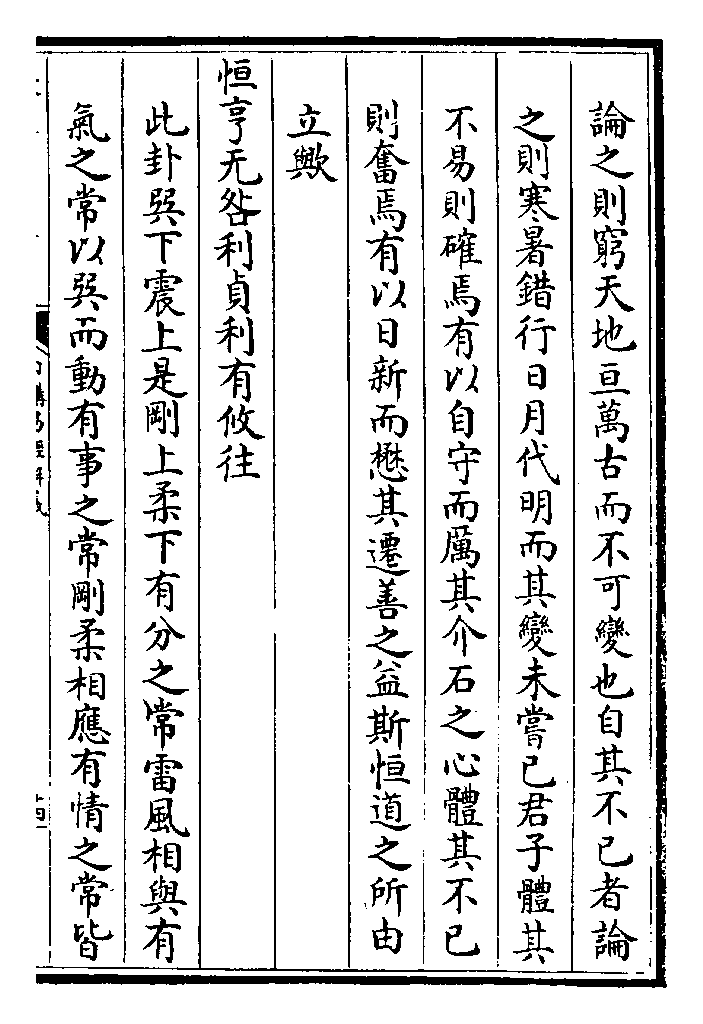 論之則窮天地亘萬古而不可變也自其不已者論
之則寒暑錯行日月代明而其變未嘗已君子體其
不易則確焉有以自守而厲其介石之心體其不已
則奮焉有以日新而懋其遷善之益斯恒道之所由
立歟
恒亨无咎利貞利有攸往
此卦巽下震上是剛上柔下有分之常雷風相與有
氣之常以巽而動有事之常剛柔相應有情之常皆